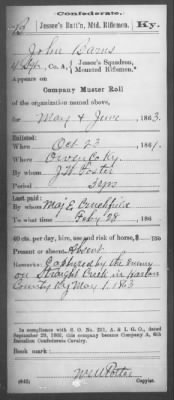 Confederate.
B | Jessee's Batt'n, Mtd. Riflemen. | Ky.
John Barns
Co. A, Jessee's Squadron, Mounted Riflemen.*
Appears on
Company Muster Roll
of the organization named above,
for May & June, 1863.
Enlisted:
When Oct 23, 1861.
Where Owen Co Ky.
By whom J.W. Foster
Period 3 yrs
Last paid:
By whom Maj E. Crutchfield
To what time Feby 28, 186
40 cts. per day, hire, use and risk of horse, $ 100
Present or absent Absent
Remarks: Captured by the Enemy
on Straight Creek in Harlan
County Ky May 1. 1863
* In compliance with S. O. No. 231, A. & I. G. O., dated
September 29, 1863, this company became Company A, 6th
Battalion Confederate Cavalry.
Book mark:
(642)
Copyist.